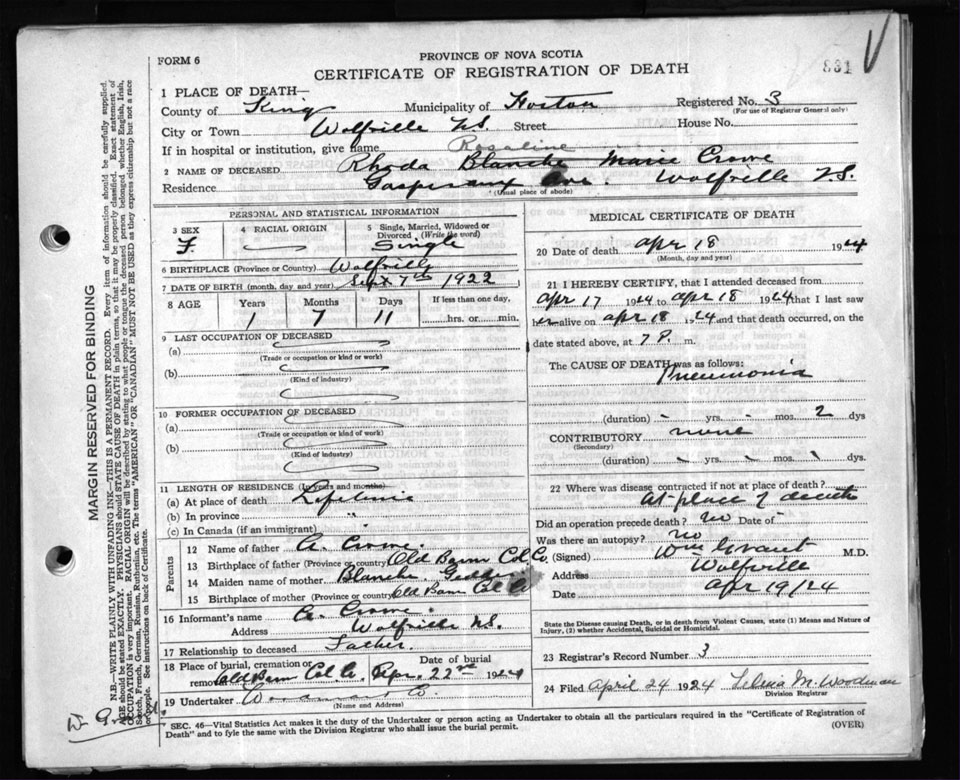 FORM 6
PROVINCE OF NOVA SCOTIA
CERTIFICATE OF REGISTRATION OF DEATH
831
1 PLACE OF DEATH—
County of King Municipality of Horton Registered No. 3
(For use of Registrar General only)
City or Town Wolfville N.S. Street House No.
If in hospital or institution, give name
Rosaline
2 NAME OF DECEASED Rhoda Blanche Marie Crowe
Residence Gaspereaux Ave. Wolfville N.S.
(Usual place of abode)
PERSONAL AND STATISTICAL INFORMATION
3 SEX F. 4 RACIAL ORIGIN 5 Single, Married, Widowed or Divorced (Write the word) Single
6 BIRTHPLACE (Province or Country) Wolfville
7 DATE OF BIRTH (month, day and year) Sept 7th 1922
8 AGE Years Months Days If less than one day,
1 7 11 hrs. or min.
9 LAST OCCUPATION OF DECEASED
(a)
(Trade or occupation or kind or work)
(b)
(Kind of industry)
10 FORMER OCCUPATION OF DECEASED
(a)
(Trade or occupation or kind of work)
(b)
(Kind of industry)
11 LENGTH OF RESIDENCE (In years and months)
(a) At place of death Lifetime
(b) In province "
(c) In Canada (if an immigrant) "
Parents
12 Name of father A. Crowe.
13 Birthplace of father (Province or country) Old Barn Col Co.
14 Maiden name of mother Blanche
15 Birthplace of mother (Province or country) Old Barn Col Co
16 Informant's name A. Crowe.
Address Wolfville N.S.
17 Relationship to deceased Father.
18 Place of burial, cremation or removal Old Barn Col Co. Date of burial Apr. 22nd 1924
19 Undertaker
(Name and Address)
MEDICAL CERTIFICATE OF DEATH
20 Date of death Apr 18 1924
(Month, day and year)
21 I HEREBY CERTIFY, that I attended deceased from
Apr 17 1924 to Apr 18 1924 that I last saw
her alive on Apr 18 1924 and that death occurred, on the
date stated above, at 7 P. m.
The CAUSE OF DEATH was as follows:
Pneumonia
(duration) - yrs. - mos. 2 dys
CONTRIBUTORY none
(Secondary)
(duration) - yrs. - mos. - dys.
22 Where was disease contracted if not at place of death?
At place of death
Did an operation precede death? no Date of
Was there an autopsy? no
(Signed) Wm Grant M.D.
Address Wolfville
Date Apr 19/24
State the Disease causing Death, or in death from Violent Causes, state (1) Means and Nature of
Injury, (2) whether Accidental, Suicidal or Homicidal.
23 Registrar's Record Number 3
24 Filed April 24 1924 M. Woodman
Division Registrar
SEC. 46—Vital Statistics Act makes it the duty of the Undertaker or person acting as Undertaker to obtain all the particulars required in the "Certificate of Registration of
Death" and to fyle the same with the Division Registrar who shall issue the burial permit.
(OVER)
MARGIN RESERVED FOR BINDING
N.B.—WRITE PLAINLY WITH UNFADING INK—THIS IS A PERMANENT RECORD. Every item of information should be carefully supplied.
AGE should be stated EXACTLY. PHYSICIANS should STATE CAUSE OF DEATH in plain terms, so that it may be properly classified. Exact statement of
OCCUPATION is very important. RACIAL ORIGIN will be described by stating to what people or tongue the deceased person belonged whether English, Irish,
Scotch, French, German, Russian, Ruthenian, etc. The terms "AMERICAN" OR "CANADIAN" MUST NOT BE USED as they express citizenship but not a race
or people. See instructions on back of Certificate.